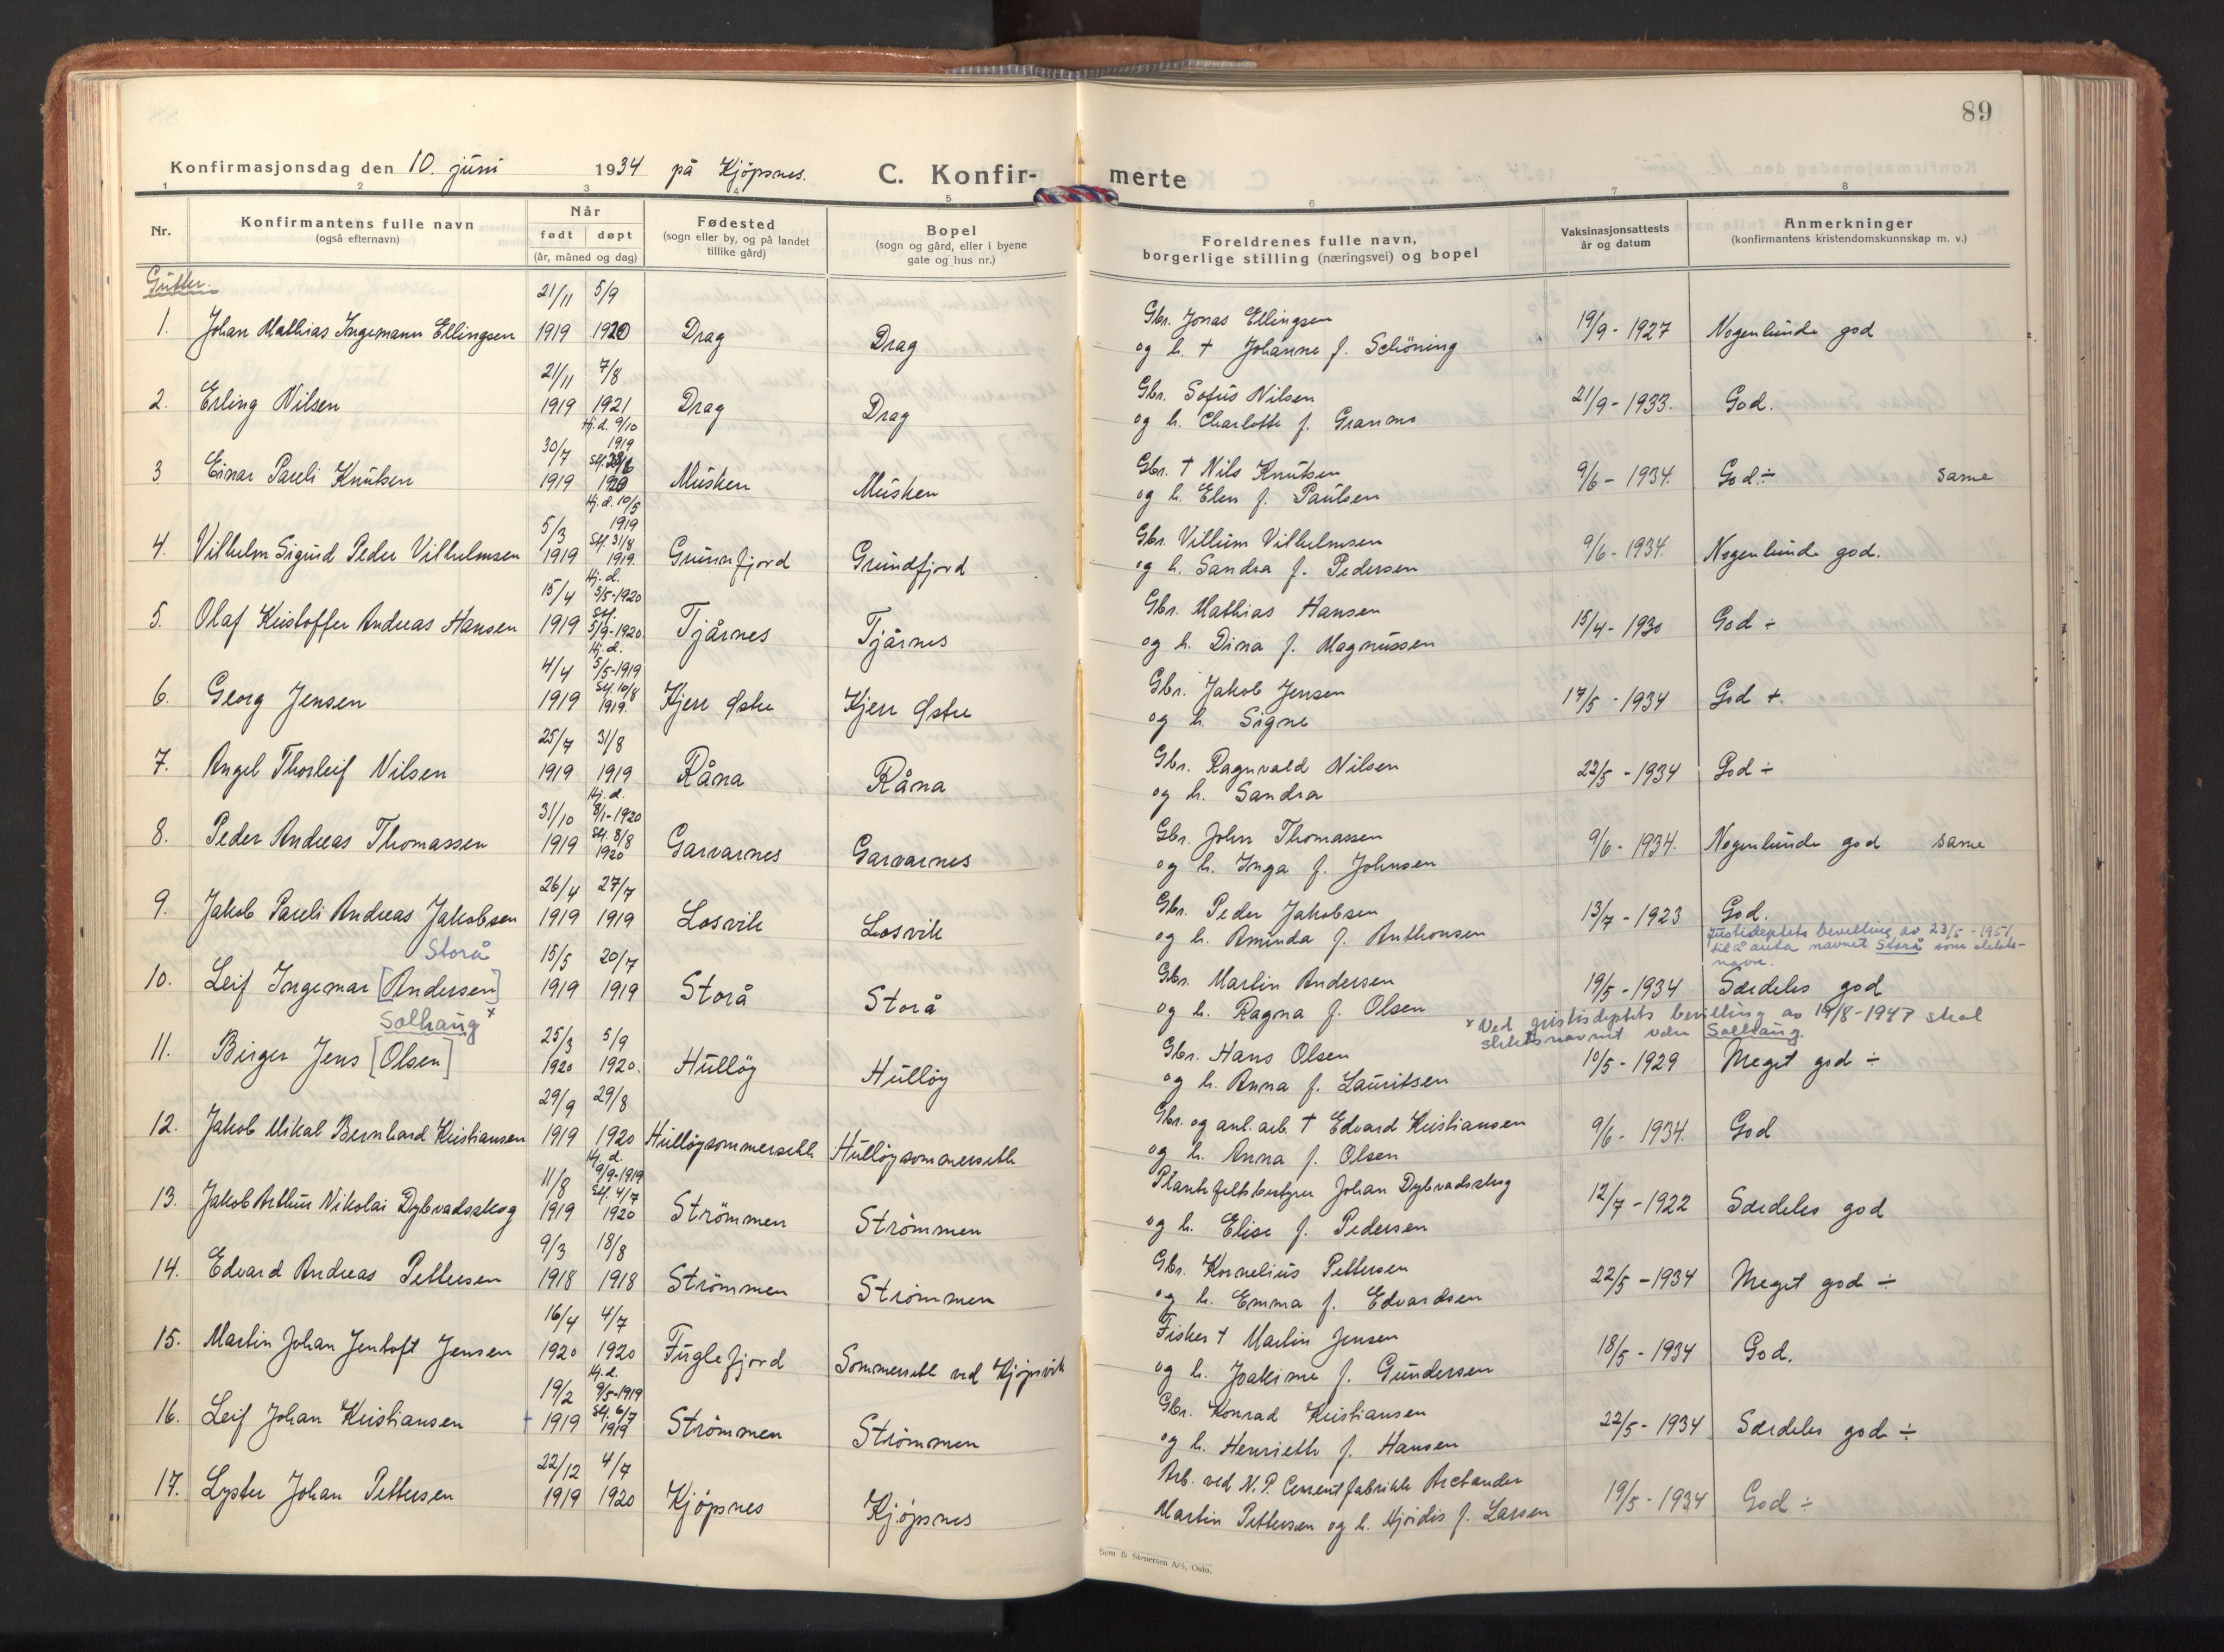 89
Konfirmasjonsdag den 10. juni 1934 på Kjøpsnes. C. Konfirmerte
1 2 3 4 5 6 7 8
Nr. Konfirmantens fulle navn (også efternavn) Når født døpt (år, måned og dag) Fødested (sogn eller by, og på landet tillike gård) Bopel (sogn og gård, eller i byene gate og hus nr.) Foreldrenes fulle navn, borgerlige stilling (næringsvei) og bopel Vaksinasjonsattests år og datum Anmerkninger (konfirmantens kristendomskunnskap m. v.)
Gutter.
1. Johan Mathias Ingemann Ellingsen 21/11 1919 5/9 1920 Drag Drag Gbr. Jonas Ellingsen og h. † Johanne f. Schöning 19/9 - 1927 Nogenlunde god
2. Erling Nilsen 21/11 1919 7/8 1921 Drag Drag Gbr. Sofus Nilsen og h. Charlotte f. Granmo 21/9 - 1933. God.
3 Einar Pauli Knutsen 30/7 1919 Hj. d. 9/10 1919 Stf. 1920 Musken Musken Gbr. † Nils Knutsen og h. Elen f. Paulsen 9/6 - 1934. God ÷ same
4. Vilhelm Sigurd Peder Vilhelmsen 5/3 1919 Hj. d. 10/5 1919 Stf. 31/8 1919. Grunnfjord Grundfjord Gbr. Villum Vilhelmsen og h. Sandra f. Pedersen 9/6 - 1934. Nogenlunde god.
5. Olaf Kristoffer Andreas Hansen 15/4 1919 Hj. d. 3/5-1920 Stf. 5/9-1920. Tjårnes Tjårnes Gbr. Mathias Hansen og h. Dina f. Magnussen 15/4 - 1930 God ÷
6. Georg Jensen 4/4 1919 Hj. d. 5/5-1919 Stf. 10/8 1919. Kjerr Østre Kjerr Østre Gbr. Jakob Jensen og h. Signe 17/5 - 1934 God +.
7. Angel Thorleif Nilsen 25/7 1919 31/8 1919 Råna Råna Gbr. Ragnvald Nilsen og h. Sandra 22/5 - 1934 God ÷
8. Peder Andreas Thomassen 31/10 1919 Hj. d. 8/1-1920 Stf. 8/8 1920 Garvarnes Garvarnes Gbr. John Thomassen og h. Inga f. Johnsen 9/6 - 1934. Nogenlunde god same
9. Jakob Pauli Andreas Jakobsen 26/4 1919 27/7 1919 Losvik Losvik Gbr. Peder Jakobsen og h. Aminda f. Anthonsen 13/7 - 1923 God.
Justisdeptets bevilling av 23/5 - 1951 til å anta navnet Storå som slekts-navn.
Storå
10. Leif Ingemar [Andersen] 15/5 1919 20/7 1919 Storå Storå Gbr. Martin Andersen og h. Ragna f. Olsen 19/5 - 1934 Særdeles god
Solhaug × × Ved justisdeptets bevilling av 19/8-1947 skal slektsnavnet være Solhaug.
11. Birger Jens [Olsen] 25/3 1920 5/9 1920. Hulløy Hulløy Gbr. Hans Olsen og h. Anna f. Lauritsen 10/5 - 1929 Meget god ÷
12. Jakob Mikal Bernhard Kristiansen 29/9 1919 29/8 1920 Hulløysommersette Hulløysommersette Gbr. og anl. arb. † Edvard Kristiansen og h. Anna f. Olsen 9/6 - 1934. God
13. Jakob Arthur Nikolai Dybvadskog 11/8 1919 Hj. d. 9/9-1919 Stf. 4/7 1920 Strömmen Strömmen Plantefeltbestyrer Johan Dybvadskog og h. Elise f. Pedersen 12/7 - 1922 Særdeles god
14. Edvard Andreas Pettersen 9/3 1918 18/8 1918 Strömmen Strömmen Gbr. Kornelius Pettersen og h. Emma f. Edvardsen 22/5 - 1934 Meget god ÷
15. Martin Johan Jentoft Jensen 16/4 1920 4/7 1920 Fuglefjord Sommersett ved Kjøpsvik Fisker † Martin Jensen og h. Joakime f. Gundersen 18/5 - 1934 God.
16. Leif Johan Kristiansen † 19/2 1919 Hj. d. 9/5-1919 Stf. 6/7 1919 Strömmen Strömmen Gbr. Konrad Kristiansen og h. Henriette f. Hansen 22/5 - 1934 Særdeles god ÷
17. Lyster Johan Pettersen 22/12 1919 4/7 1920 Kjøpsnes Kjøpsnes Arb. ved N. P. Cementfabrikk Martin Pettersen og h. Hjördis f. Larsen 19/5 - 1934 God ÷
Sem & Stenersen A/S, Oslo.